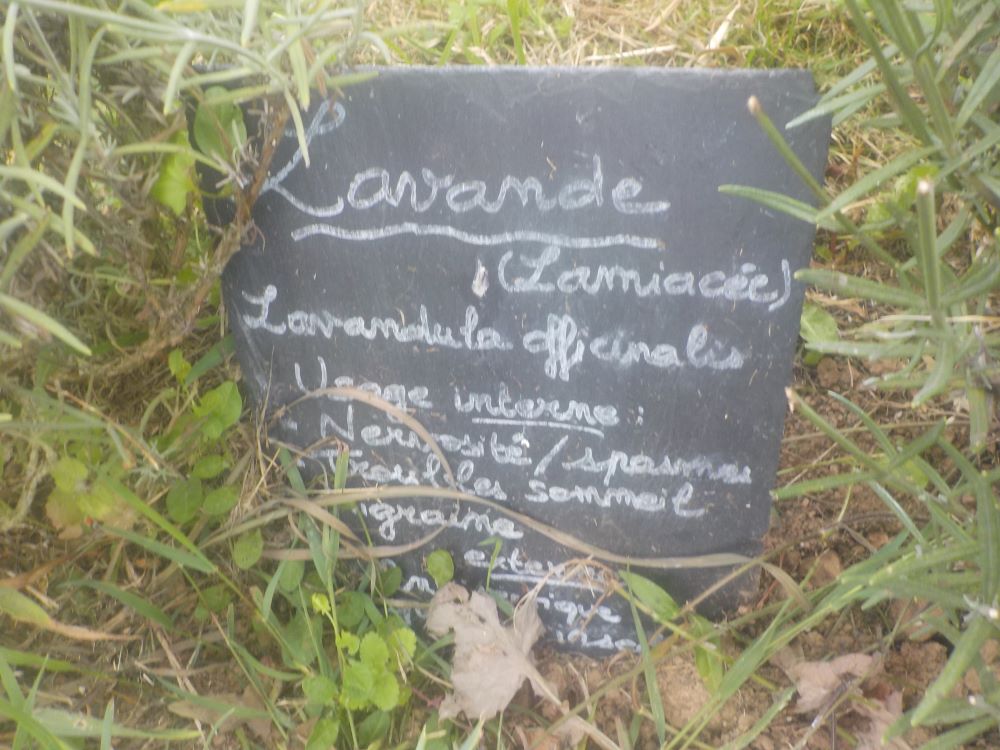 Lavande
(Lamiacée)
Lavandula officinalis
Usage interne :
- Nervosité / spasmes
- Troubles sommeil
igraine
externe